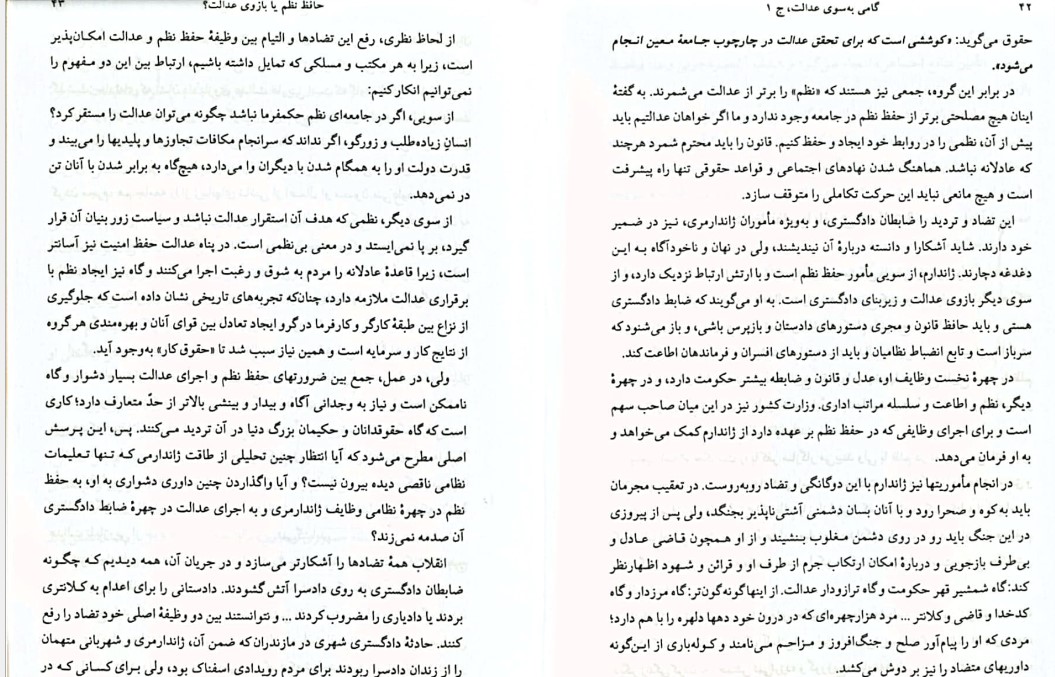 ۴۲
گامی به‌سوی عدالت، ج ۱
حقوق می‌گوید: «کوششی است که برای تحقق عدالت در چارچوب جامعهٔ معین انجام
می‌شود».
در برابر این گروه، جمعی نیز هستند که «نظم» را برتر از عدالت می‌شمرند. به گفتهٔ
اینان هیچ مصلحتی برتر از حفظ نظم در جامعه وجود ندارد و ما اگر خواهان عدالتیم باید
پیش از آن، نظمی را در روابط خود ایجاد و حفظ کنیم. قانون را باید محترم شمرد هرچند
که عادلانه نباشد. هماهنگ شدن نهادهای اجتماعی و قواعد حقوقی تنها راه پیشرفت
است و هیچ مانعی نباید این حرکت تکاملی را متوقف سازد.
این تضاد و تردید را ضابطان دادگستری، و به‌ویژه مأموران ژاندارمری، نیز در ضمیر
خود دارند. شاید آشکارا و دانسته دربارهٔ آن نیندیشند، ولی در نهان و ناخودآگاه به این
دغدغه دچارند. ژاندارم، از سویی مأمور حفظ نظم است و با ارتش ارتباط نزدیک دارد، و از
سوی دیگر بازوی عدالت و زیربنای دادگستری است. به او می‌گویند که ضابط دادگستری
هستی و باید حافظ قانون و مجری دستورهای دادستان و بازپرس باشی، و باز می‌شنود که
سرباز است و تابع انضباط نظامیان و باید از دستورهای افسران و فرماندهان اطاعت کند.
در چهرهٔ نخست وظایف او، عدل و قانون و ضابطه بیشتر حکومت دارد، و در چهرهٔ
دیگر، نظم و اطاعت و سلسله مراتب اداری. وزارت کشور نیز در این میان صاحب سهم
است و برای اجرای وظایفی که در حفظ نظم بر عهده دارد از ژاندارم کمک می‌خواهد و
به او فرمان می‌دهد.
در انجام مأموریتها نیز ژاندارم با این دوگانگی و تضاد روبه‌روست. در تعقیب مجرمان
باید به کوه و صحرا رود و با آنان بسان دشمنی آشتی‌ناپذیر بجنگد، ولی پس از پیروزی
در این جنگ باید رو در روی دشمن مغلوب بنشیند و از او همچون قاضی عادل و
بی‌طرف بازجویی و دربارهٔ امکان ارتکاب جرم از طرف او و قرائن و شهود اظهارنظر
کند: گاه شمشیر قهر حکومت و گاه ترازودار عدالت. از اینها گونه‌گون‌تر: گاه مرزدار و گاه
کدخدا و قاضی و کلانتر ... مرد هزارچهره‌ای که در درون خود دهها دلهره را با هم دارد؛
مردی که او را پیام‌آور صلح و جنگ‌افروز و مزاحم می‌نامند و کوله‌باری از این‌گونه
داوریهای متضاد را نیز بر دوش می‌کشد.
حافظ نظم یا بازوی عدالت؟
۴۳
از لحاظ نظری، رفع این تضادها و التیام بین وظیفهٔ حفظ نظم و عدالت امکان‌پذیر
است، زیرا به هر مکتب و مسلکی که تمایل داشته باشیم، ارتباط بین این دو مفهوم را
نمی‌توانیم انکار کنیم:
از سویی، اگر در جامعه‌ای نظم حکمفرما نباشد چگونه می‌توان عدالت را مستقر کرد؟
انسانِ زیاده‌طلب و زورگو، اگر نداند که سرانجام مکافات تجاوزها و پلیدیها را می‌بیند و
قدرت دولت او را به همگام شدن با دیگران وا می‌دارد، هیچ‌گاه به برابر شدن با آنان تن
در نمی‌دهد.
از سوی دیگر، نظمی که هدف آن استقرار عدالت نباشد و سیاست زور بنیان آن قرار
گیرد، بر پا نمی‌ایستد و در معنی بی‌نظمی است. در پناه عدالت حفظ امنیت نیز آسانتر
است، زیرا قاعدهٔ عادلانه را مردم به شوق و رغبت اجرا می‌کنند و گاه نیز ایجاد نظم با
برقراری عدالت ملازمه دارد، چنان‌که تجربه‌های تاریخی نشان داده است که جلوگیری
از نزاع بین طبقهٔ کارگر و کارفرما در گرو ایجاد تعادل بین قوای آنان و بهره‌مندی هر گروه
از نتایج کار و سرمایه است و همین نیاز سبب شد تا «حقوق کار» به‌وجود آید.
ولی، در عمل، جمع بین ضرورتهای حفظ نظم و اجرای عدالت بسیار دشوار و گاه
ناممکن است و نیاز به وجدانی آگاه و بیدار و بینشی بالاتر از حدّ متعارف دارد؛ کاری
است که گاه حقوقدانان و حکیمان بزرگ دنیا در آن تردید می‌کنند. پس، این پرسش
اصلی مطرح می‌شود که آیا انتظار چنین تحلیلی از طاقت ژاندارمی که تنها تعلیمات
نظامی ناقصی دیده بیرون نیست؟ و آیا واگذاردن چنین داوری دشواری به او، به حفظ
نظم در چهرهٔ نظامی وظایف ژاندارمری و به اجرای عدالت در چهرهٔ ضابط دادگستری
آن صدمه نمی‌زند؟
انقلاب همهٔ تضادها را آشکارتر می‌سازد و در جریان آن، همه دیدیم که چگونه
ضابطان دادگستری به روی دادسرا آتش گشودند. دادستانی را برای اعدام به کلانتری
بردند یا دادیاری را مضروب کردند ... و نتوانستند بین دو وظیفهٔ اصلی خود تضاد را رفع
کنند. حادثهٔ دادگستری شهری در مازندران که ضمن آن، ژاندارمری و شهربانی متهمان
را از زندان دادسرا ربودند برای مردم رویدادی اسفناک بود، ولی برای کسانی که در